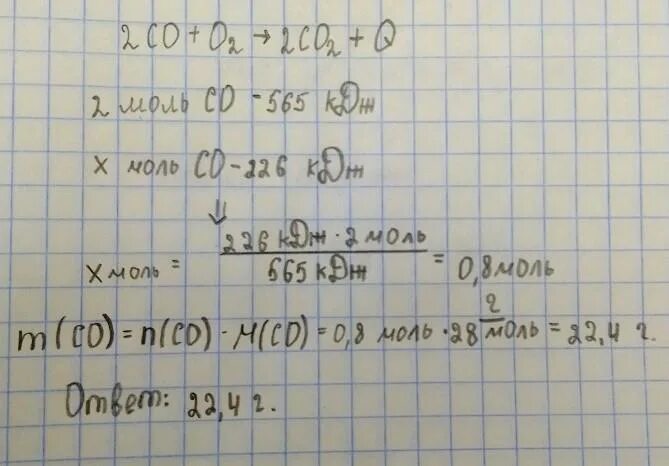 2CO + O₂ → 2CO₂ + Q
2 моль CO - 565 кДж
x моль CO - 226 кДж
↓
x моль = 226 кДж · 2 моль / 565 кДж = 0,8 моль
m(CO) = n(CO) · M(CO) = 0,8 моль · 28 г/моль = 22,4 г.
Ответ: 22,4 г.